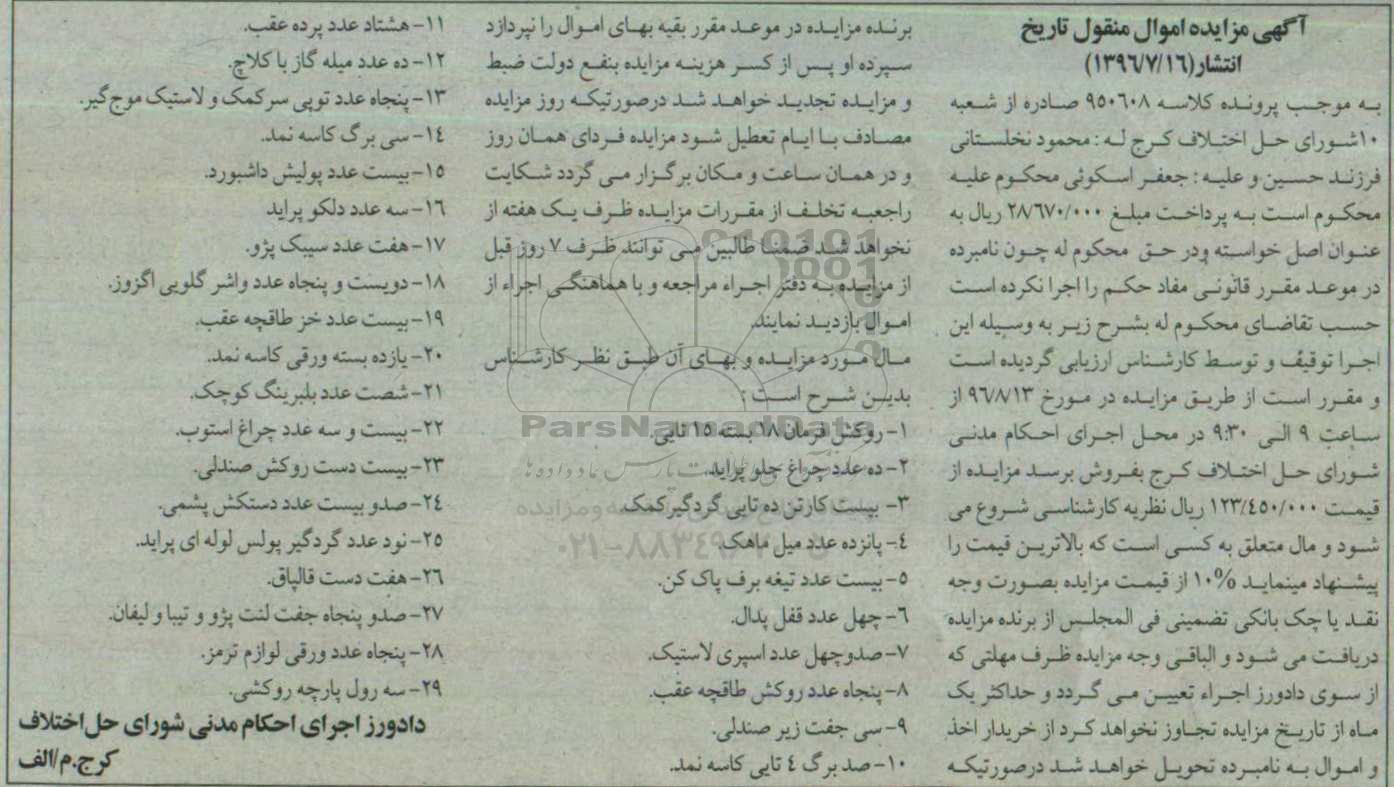 آگهی مزایده اموال منقول تاریخ
انتشار(۱۳۹۶/۷/۱۶)
به موجب پرونده کلاسه ۹۵۰۶۰۸ صادره از شعبه
۱۰شورای حل اختلاف کرج له : محمود نخلستانی
فرزند حسین و علیه : جعفر اسکوئی محکوم علیه
محکوم است به پرداخت مبلغ ۲۸/۶۷۰/۰۰۰ ریال به
عنوان اصل خواسته ودر حق محکوم له چون نامبرده
در موعد مقرر قانونی مفاد حکم را اجرا نکرده است
حسب تقاضای محکوم له بشرح زیر به وسیله این
اجرا توقیف و توسط کارشناس ارزیابی گردیده است
و مقرر است از طریق مزایده در مورخ ۹۶/۸/۱۳ از
ساعت ۹ الی ۹:۳۰ در محل اجرای احکام مدنی
شورای حل اختلاف کرج بفروش برسد مزایده از
قیمت ۱۲۳/۴۵۰/۰۰۰ ریال نظریه کارشناسی شروع می
شود و مال متعلق به کسی است که بالاترین قیمت را
پیشنهاد مینماید %۱۰ از قیمت مزایده بصورت وجه
نقد یا چک بانکی تضمینی فی المجلس از برنده مزایده
دریافت می شود و الباقی وجه مزایده ظرف مهلتی که
از سوی دادورز اجراء تعیین می گردد و حداکثر یک
ماه از تاریخ مزایده تجاوز نخواهد کرد از خریدار اخذ
و اموال به نامبرده تحویل خواهد شد درصورتیکه
برنده مزایده در موعد مقرر بقیه بهای اموال را نپردازد
سپرده او پس از کسر هزینه مزایده بنفع دولت ضبط
و مزایده تجدید خواهد شد درصورتیکه روز مزایده
مصادف با ایام تعطیل شود مزایده فردای همان روز
و در همان ساعت و مکان برگزار می گردد شکایت
راجعبه تخلف از مقررات مزایده ظرف یک هفته از
نخواهد شد ضمنا طالبین می توانند ظرف ۷ روز قبل
از مزایده به دفتر اجراء مراجعه و با هماهنگی اجراء از
اموال بازدید نمایند.
مال مورد مزایده و بهای آن طبق نظر کارشناس
بدین شرح است :
۱- روکش فرمان ۱۸ بسته ۱۵ تایی.
۲- ده عدد چراغ جلو پراید.
۳- بیست کارتن ده تایی گردگیر کمک.
۴- پانزده عدد میل ماهک.
۵- بیست عدد تیغه برف پاک کن.
۶- چهل عدد قفل پدال.
۷- صدوچهل عدد اسپری لاستیک.
۸- پنجاه عدد روکش طاقچه عقب.
۹- سی جفت زیر صندلی.
۱۰- صد برگ ۴ تایی کاسه نمد.
۱۱- هشتاد عدد پرده عقب.
۱۲- ده عدد میله گاز با کلاچ.
۱۳- پنجاه عدد توپی سرکمک و لاستیک موج گیر.
۱۴- سی برگ کاسه نمد.
۱۵- بیست عدد پولیش داشبورد.
۱۶- سه عدد دلکو پراید
۱۷- هفت عدد سیبک پژو.
۱۸- دویست و پنجاه عدد واشر گلویی اگزوز.
۱۹- بیست عدد خز طاقچه عقب.
۲۰- یازده بسته ورقی کاسه نمد.
۲۱- شصت عدد بلبرینگ کوچک.
۲۲- بیست و سه عدد چراغ استوب.
۲۳- بیست دست روکش صندلی.
۲۴- صدو بیست عدد دستکش پشمی.
۲۵- نود عدد گردگیر پولس لوله ای پراید.
۲۶- هفت دست قالپاق.
۲۷- صدو پنجاه جفت لنت پژو و تیبا و لیفان.
۲۸- پنجاه عدد ورقی لوازم ترمز.
۲۹- سه رول پارچه روکشی.
دادورز اجرای احکام مدنی شورای حل اختلاف
کرج.م/الف
ParsNamadData